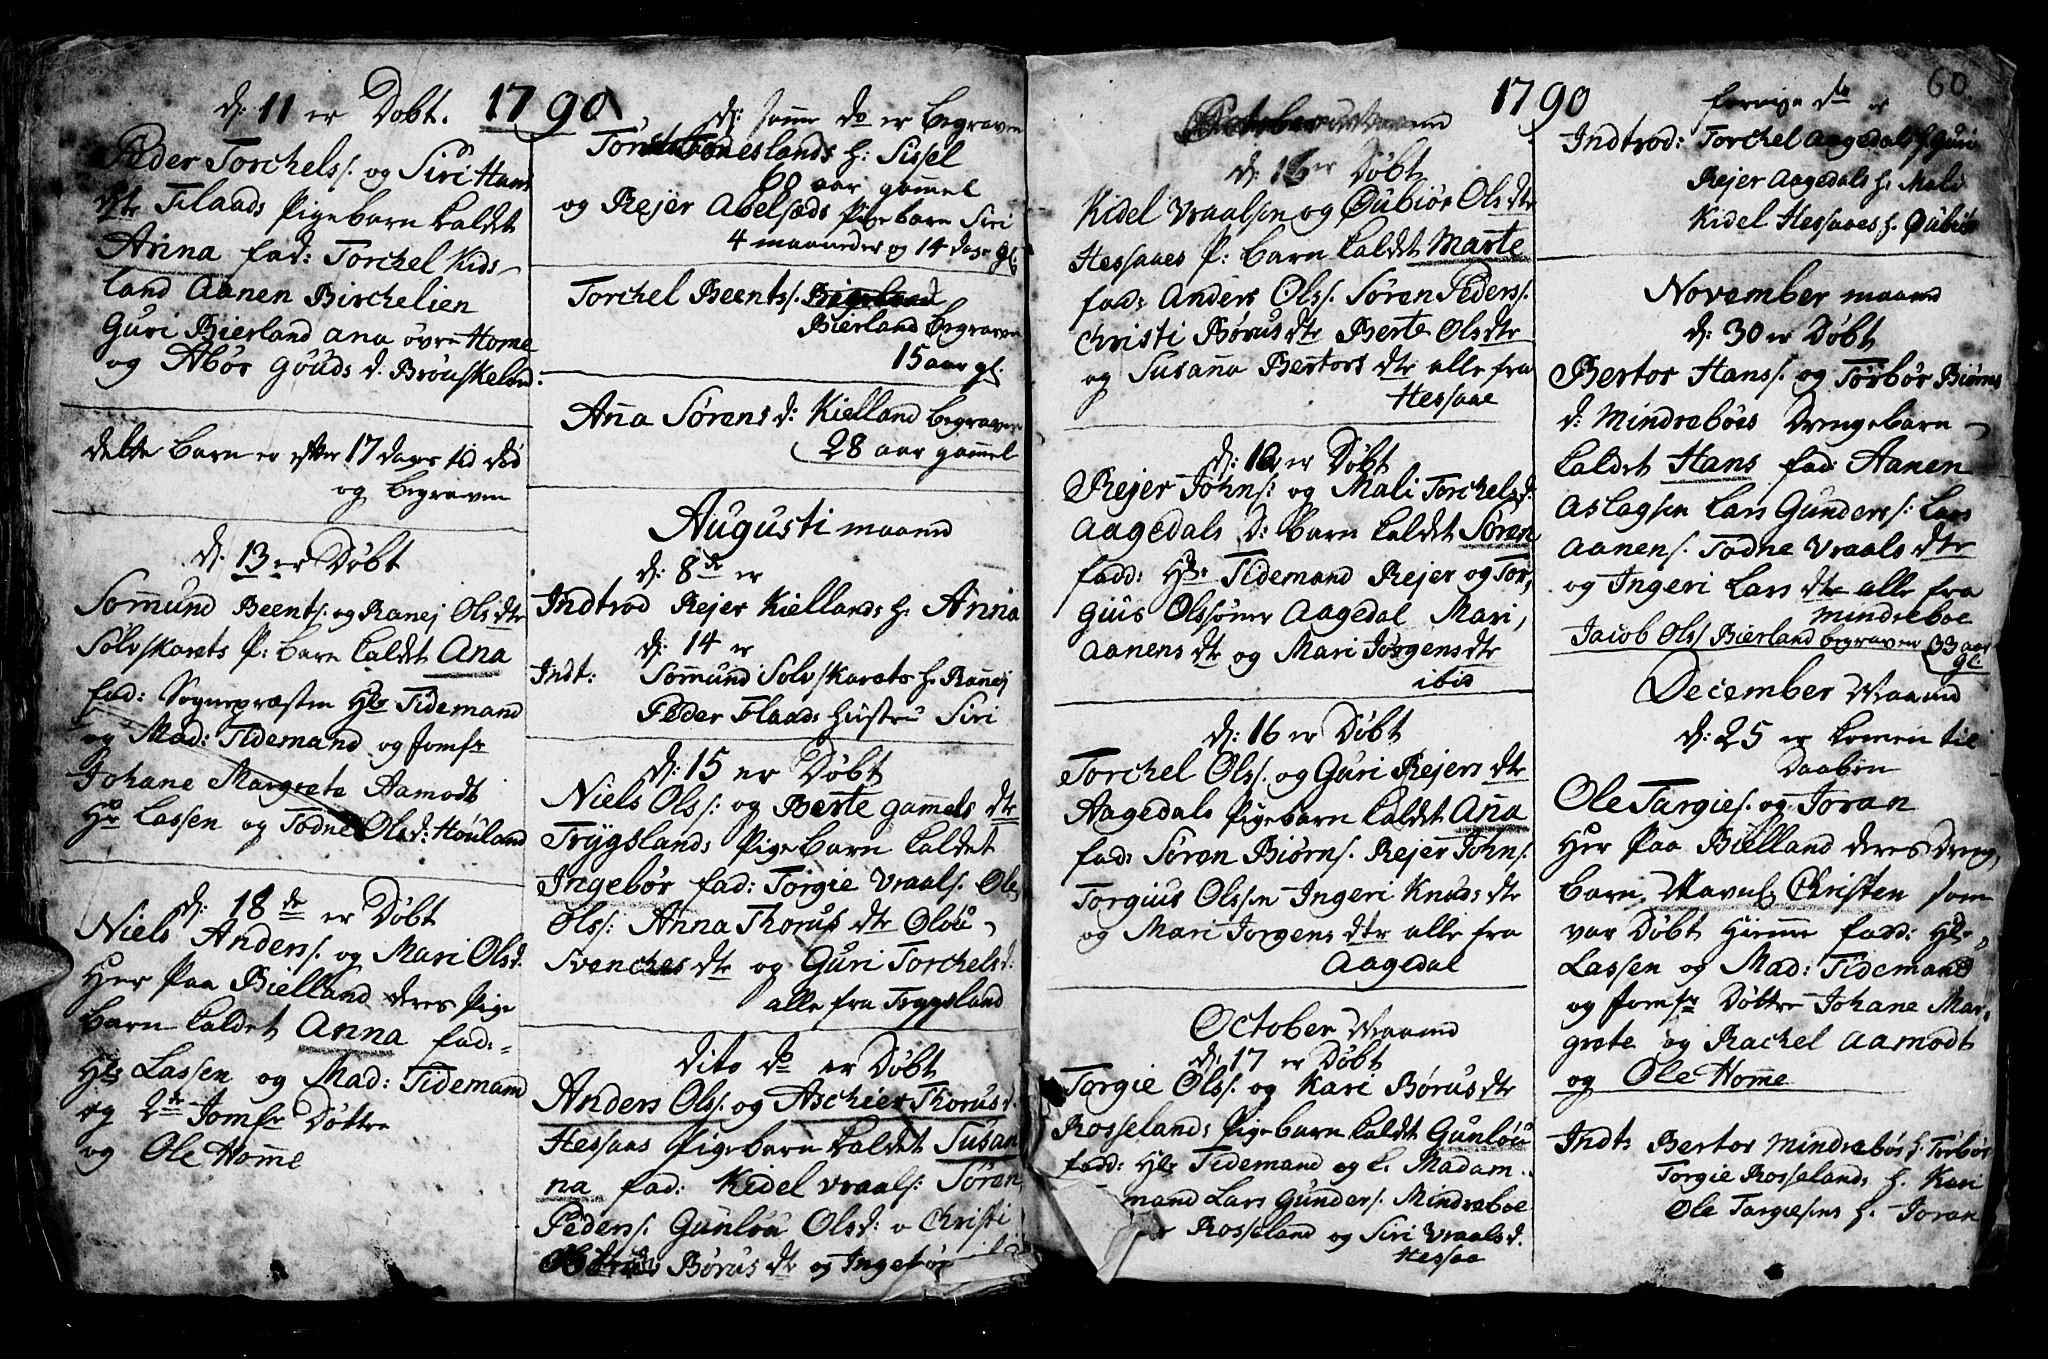 1790
d: 11 er Døbt.
Peder Torchels. og Siri Hans
dtr Flaads Pigebarn kaldet
Anna fad: Torchel Kids-
land Aanen Birchelien
Guri Bierland Ana øvre Home
og Abør Gouds d. Brøuskeland.
dette barn er efter 17 dages tid død
og begraven
d: 13 er Døbt
Sommund Beents. og Ranej Ols dtr
Sølvskarets P: barn kaldet Ana
fad: Sognepræsten Hr Tidemand
og Mad: Tidemand og Jomfr
Johane Margreta Aamodt
Hr Lassen og Todne Olsd: Houland
d: 18 de er Døbt
Niels Anders. og Mari Olsd.
Her paa Bielland deres Pige
barn kaldet Anna fad:
Hr Lassen og Mad: Tidemand
og 2de Jomfr Døttre
og Ole Homme
d: samme do er begraven
Foneslands H: Sissel
68 aar gammel
og Rejer Abelsæds Pigebarn Siri
4 maaneder og 14 dage gl.
Torchel Beents.
Bierland begraven
15 aar gl.
Anna Sørens d: Kielland begraven
28 aar gammel
Augusti maaned
d: 8de er
Indtrod Rejer Kiellands H: Anna
d: 14 er
Indt: Sommund Solvskarets H. Rannej
Peder Flaads Hustru Siri
d: 15 er Døbt
Niels Ols: og Berte Gammels dtr
Trygslands Pigebarn kaldet
Ingebør fad: Torgie Vraals. Ole
Ols: Anna Thorus dtr Olou
Svenches dtr og Guri Torchels d:
alle fra Tryggsland
Dito do er Døbt
Anders Ols. og Aschier Thorus d.
Hessaas Pigebarn kaldet Susan
na fad: Kidel Vraals: Søren
Peders. Gunlou Ols d: o Christi
Børus dtr og Ingebør
1790
60.
d: 16 er Døbt
Kidel Vraalsen og Oubiør Ols dtr
Hessaaes P: barn kaldet Marte
fad: Anders Ols. Søren Peders.
Christi Børus dtr Berte Ols dtr
og Susana Bertors dtr alle fra
Hessaae
d: 16 er Døbt
Rejer Johns: og Mali Torchels d:
Aagedals D: barn kaldet Søren
fadd: Hr Tidemand Rejer og Tor,
gius Olssøner Aagedal Mari,
Aanens dtr og Mari Jørgens dtr
ibid
d: 16 er Døbt
Torchel Ols. og Guri Rejers dtr
Aagedals Pigebarn kaldet Anna
fad: Søren Biørns. Rejer Johns.
Torgius Olssen Ingeri Knuds dtr
og Mari Jorgens dtr alle fra
Aagedal
October Maaned
d: 17 er Døbt
Torgie Ols. og Kari Børus dtr
Rosselands Pigebarn kaldet Gunlou
fadd: Hr Tidemand og l. Madam
mand Lars Gunders. Mindreboe
Rosseland og Siri Vraals d.
Hessae
forrige do er
Indtrod: Torchel Aagedals H. Guri
Rejer Aagedals H. Mali
Kidel Hessaaes H. Oubiør
November maaned
d: 30 er Døbt
Bertor Hans. og Tørbør Biørns
d: Mindrebøes Drengebarn
kaldet Hans fad: Aanen
Aslagsen Lars Gunders: Lars
Aanens. Todne Vraals dtr
og Ingeri Lars dtr alle fra
Mindreboe
Jacob Ols Bierland begraven 33 aar
gl.
December Maaned
d: 25 er komen til
Daaben
Ole Targies. og Joran
Her paa Bielland deres Dreng,
barn, Navnl. Christen som
var Døbt hiemme fadd: Hr
Lassen og Mad: Tidemand
og Jomfr Døttre Johane Mar,
grete og Rachel Aamodt
og Ole Homme
Indt: Bertor Mindrebøs H. Tørbør
Torgie Rosselands H. Kari
Ole Targiesens H. Joran